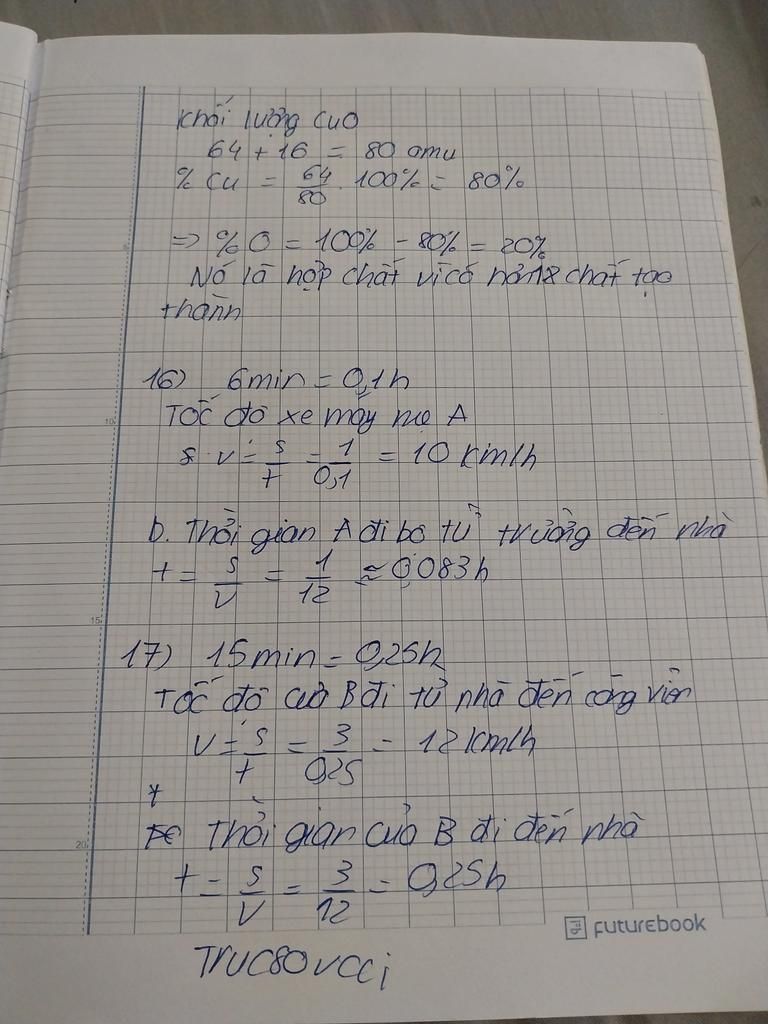 Khối lượng CuO
64 + 16 = 80 amu
% Cu = 64/80 . 100% = 80%
=> % O = 100% - 80% = 20%
Nó là hợp chất vì có hơn 2 chất tạo
thành
16) 6min = 0,1h
Tốc độ xe máy mẹ A
v = s/t = 1/0,1 = 10 km/h
b. Thời gian A đi bộ từ trường đến nhà
t = s/v = 1/12 ≈ 0,083h
17) 15min = 0,25h
Tốc độ của B đi từ nhà đến công viên
v = s/t = 3/0,25 = 12 km/h
Thời gian của B đi đến nhà
t = s/v = 3/12 = 0,25h
futurebook
5
10
15
20